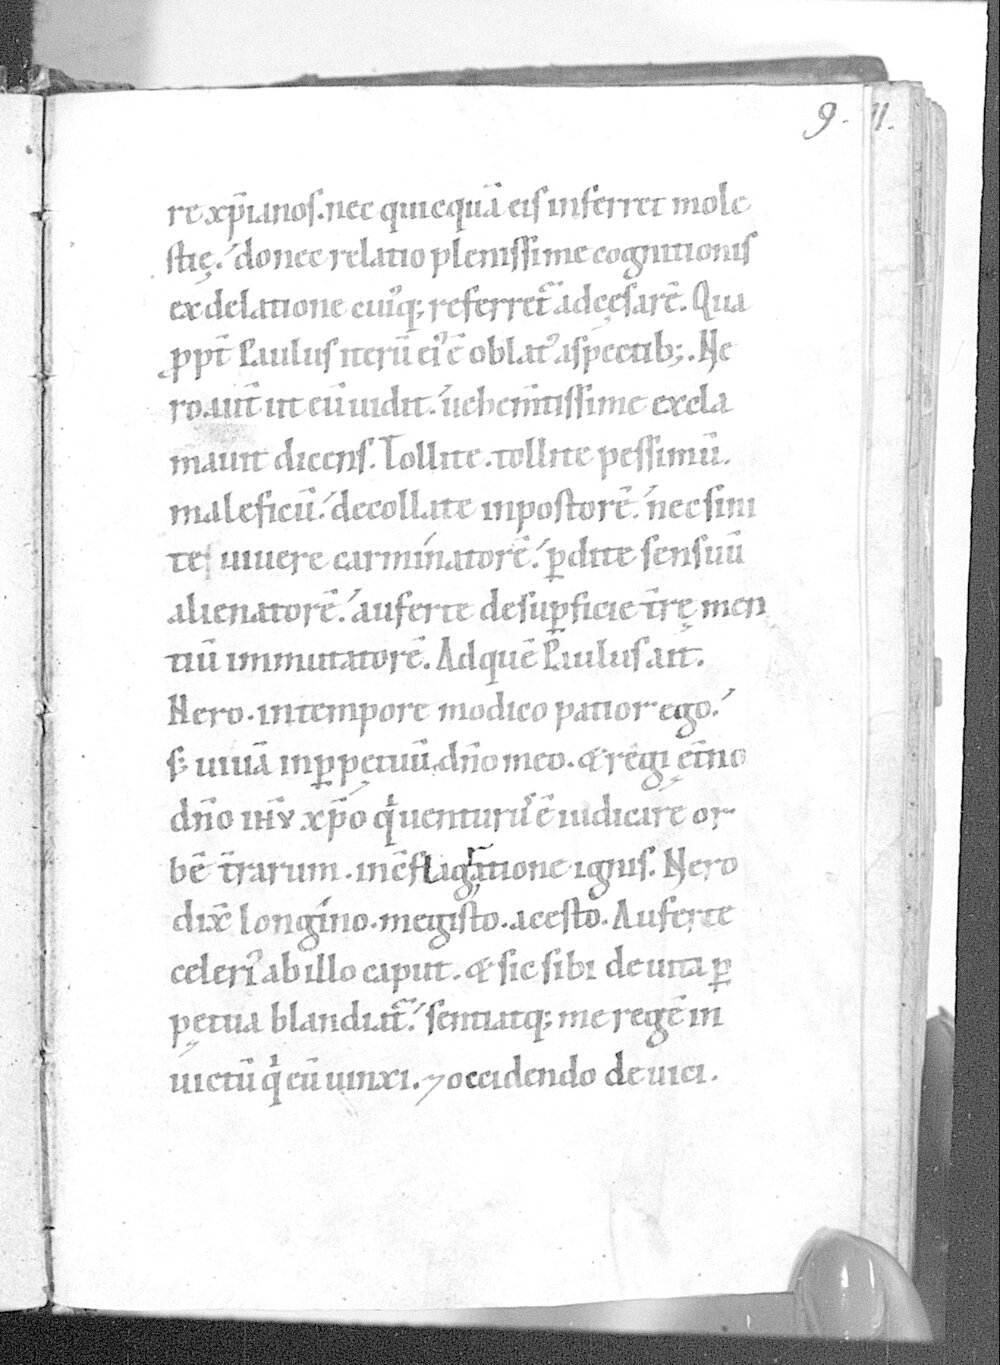 9. 11.
re xp̄ianos. nec quicquā eis inferret mole
stię. donec relatio plenissime cognitionis
ex delatione cuiꝰq; referret̄ ad cęsarē. Qua
ꝓpt̄ Paulus iterū eiꝰ ē oblatꝰ aspectib;. Ne
ro aut̄ ut eū uidit. uehem̄tissime excla
mauit dicens. Tollite. tollite pessimū.
maleficū. decollate inpostorē. nec sini
te uiuere carminatorē. ꝑdite sensuū
alienatorē. auferte de suꝑficie t̄rę men
tiū immutatorē. Ad quē Paulus ait.
Nero. in tempore modico patior ego.
s; uiuā in ꝑpętuū dn̄o meo. & regi ęt̄no
dn̄o ihv̄ xp̄o qⁱ uenturꝰ ē iudicare or
bē t̄rarum. in c̄flagratione ignis. Nero
dix̄ longino. megisto. acesto. Auferte
celeriꝰ ab illo caput. & sic sibi de uita ꝑ
pętua blandiat̄. sentiatq; me regē in
uictū qⁱ eū uinxi. ⁊ occidendo deuici.